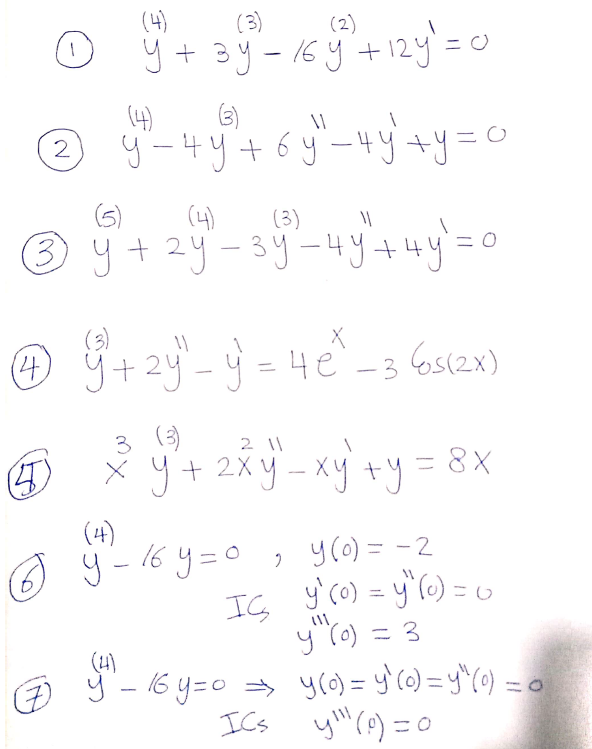 ① y⁽⁴⁾ + 3y⁽³⁾ - 16y⁽²⁾ + 12y' = 0
② y⁽⁴⁾ - 4y⁽³⁾ + 6y'' - 4y' + y = 0
③ y⁽⁵⁾ + 2y⁽⁴⁾ - 3y⁽³⁾ - 4y'' + 4y' = 0
④ y⁽³⁾ + 2y'' - y' = 4eˣ - 3 Cos(2x)
⑤ x³ y⁽³⁾ + 2x² y'' - xy' + y = 8x
⑥ y⁽⁴⁾ - 16y = 0 , y(0) = -2
ICs y'(0) = y''(0) = 0
y'''(0) = 3
⑦ y⁽⁴⁾ - 16y = 0 ⇒ y(0) = y'(0) = y''(0) = 0
ICs y'''(0) = 0